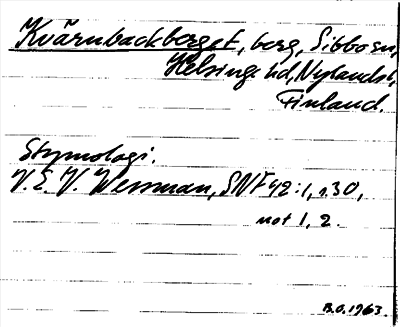 Kvärnbackberget, berg, Sibbo sn,
Helsinge hd, Nylands l,
Finland.
Etymologi.
V. E. V. Wessman, SNF 42:1, s. 30,
not 1, 2.
B.O. 1963